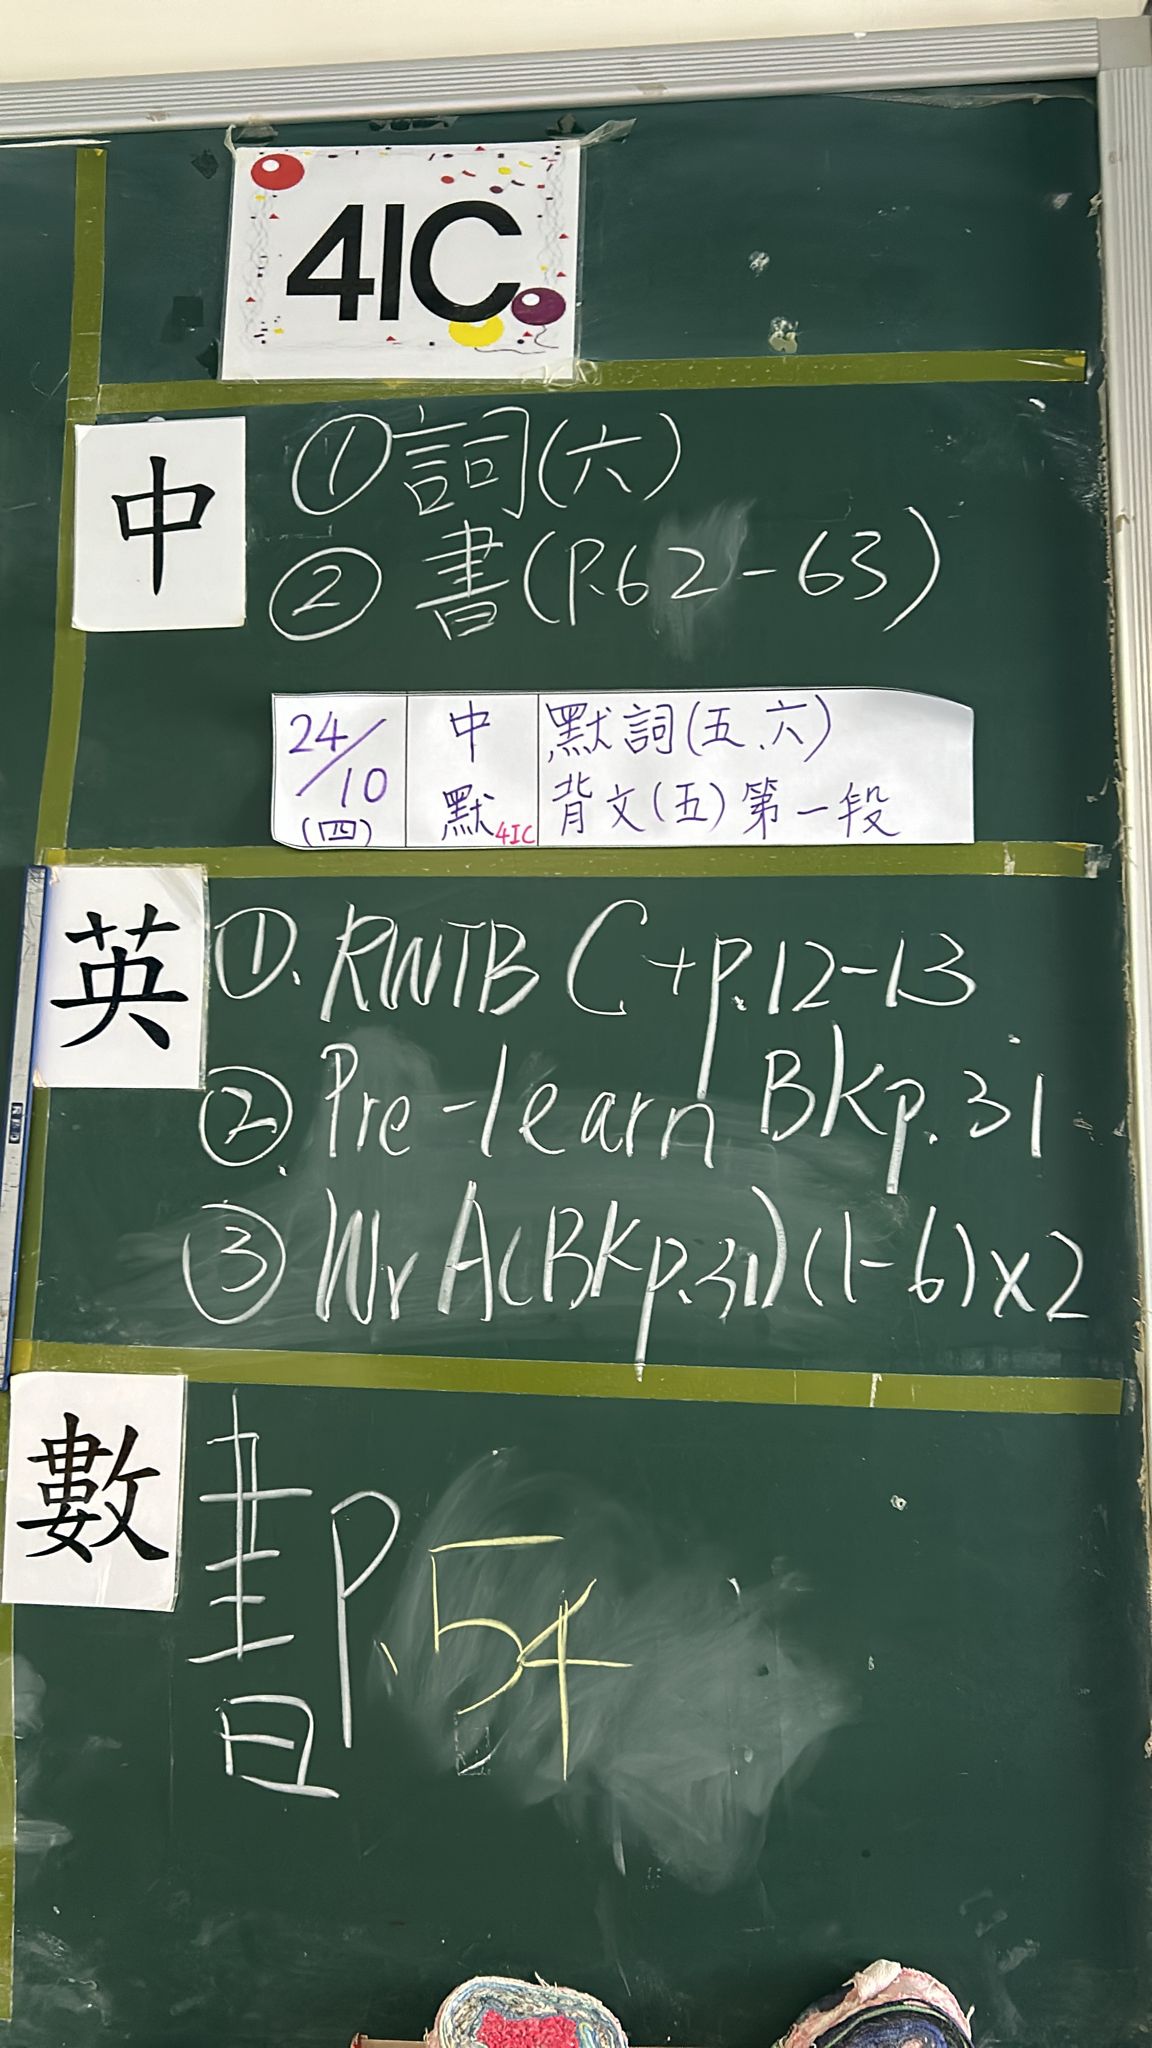 4IC
中
①詞(六)
②書(P.62-63)
24/10
(四)
中
默
4IC
默詞(五、六)
背文(五)第一段
英
①. RWTB C +p.12-13
②. Pre-learn BKp.31
③ Wr A(BKp.31)(1-6)x2
數
書P.54